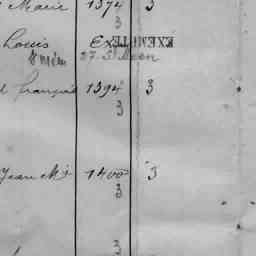 Marie 1374 3
3
Louis EXEMPTÉ
27 St Méen
François 1394 3
3
Jean M 1400 3
3
3